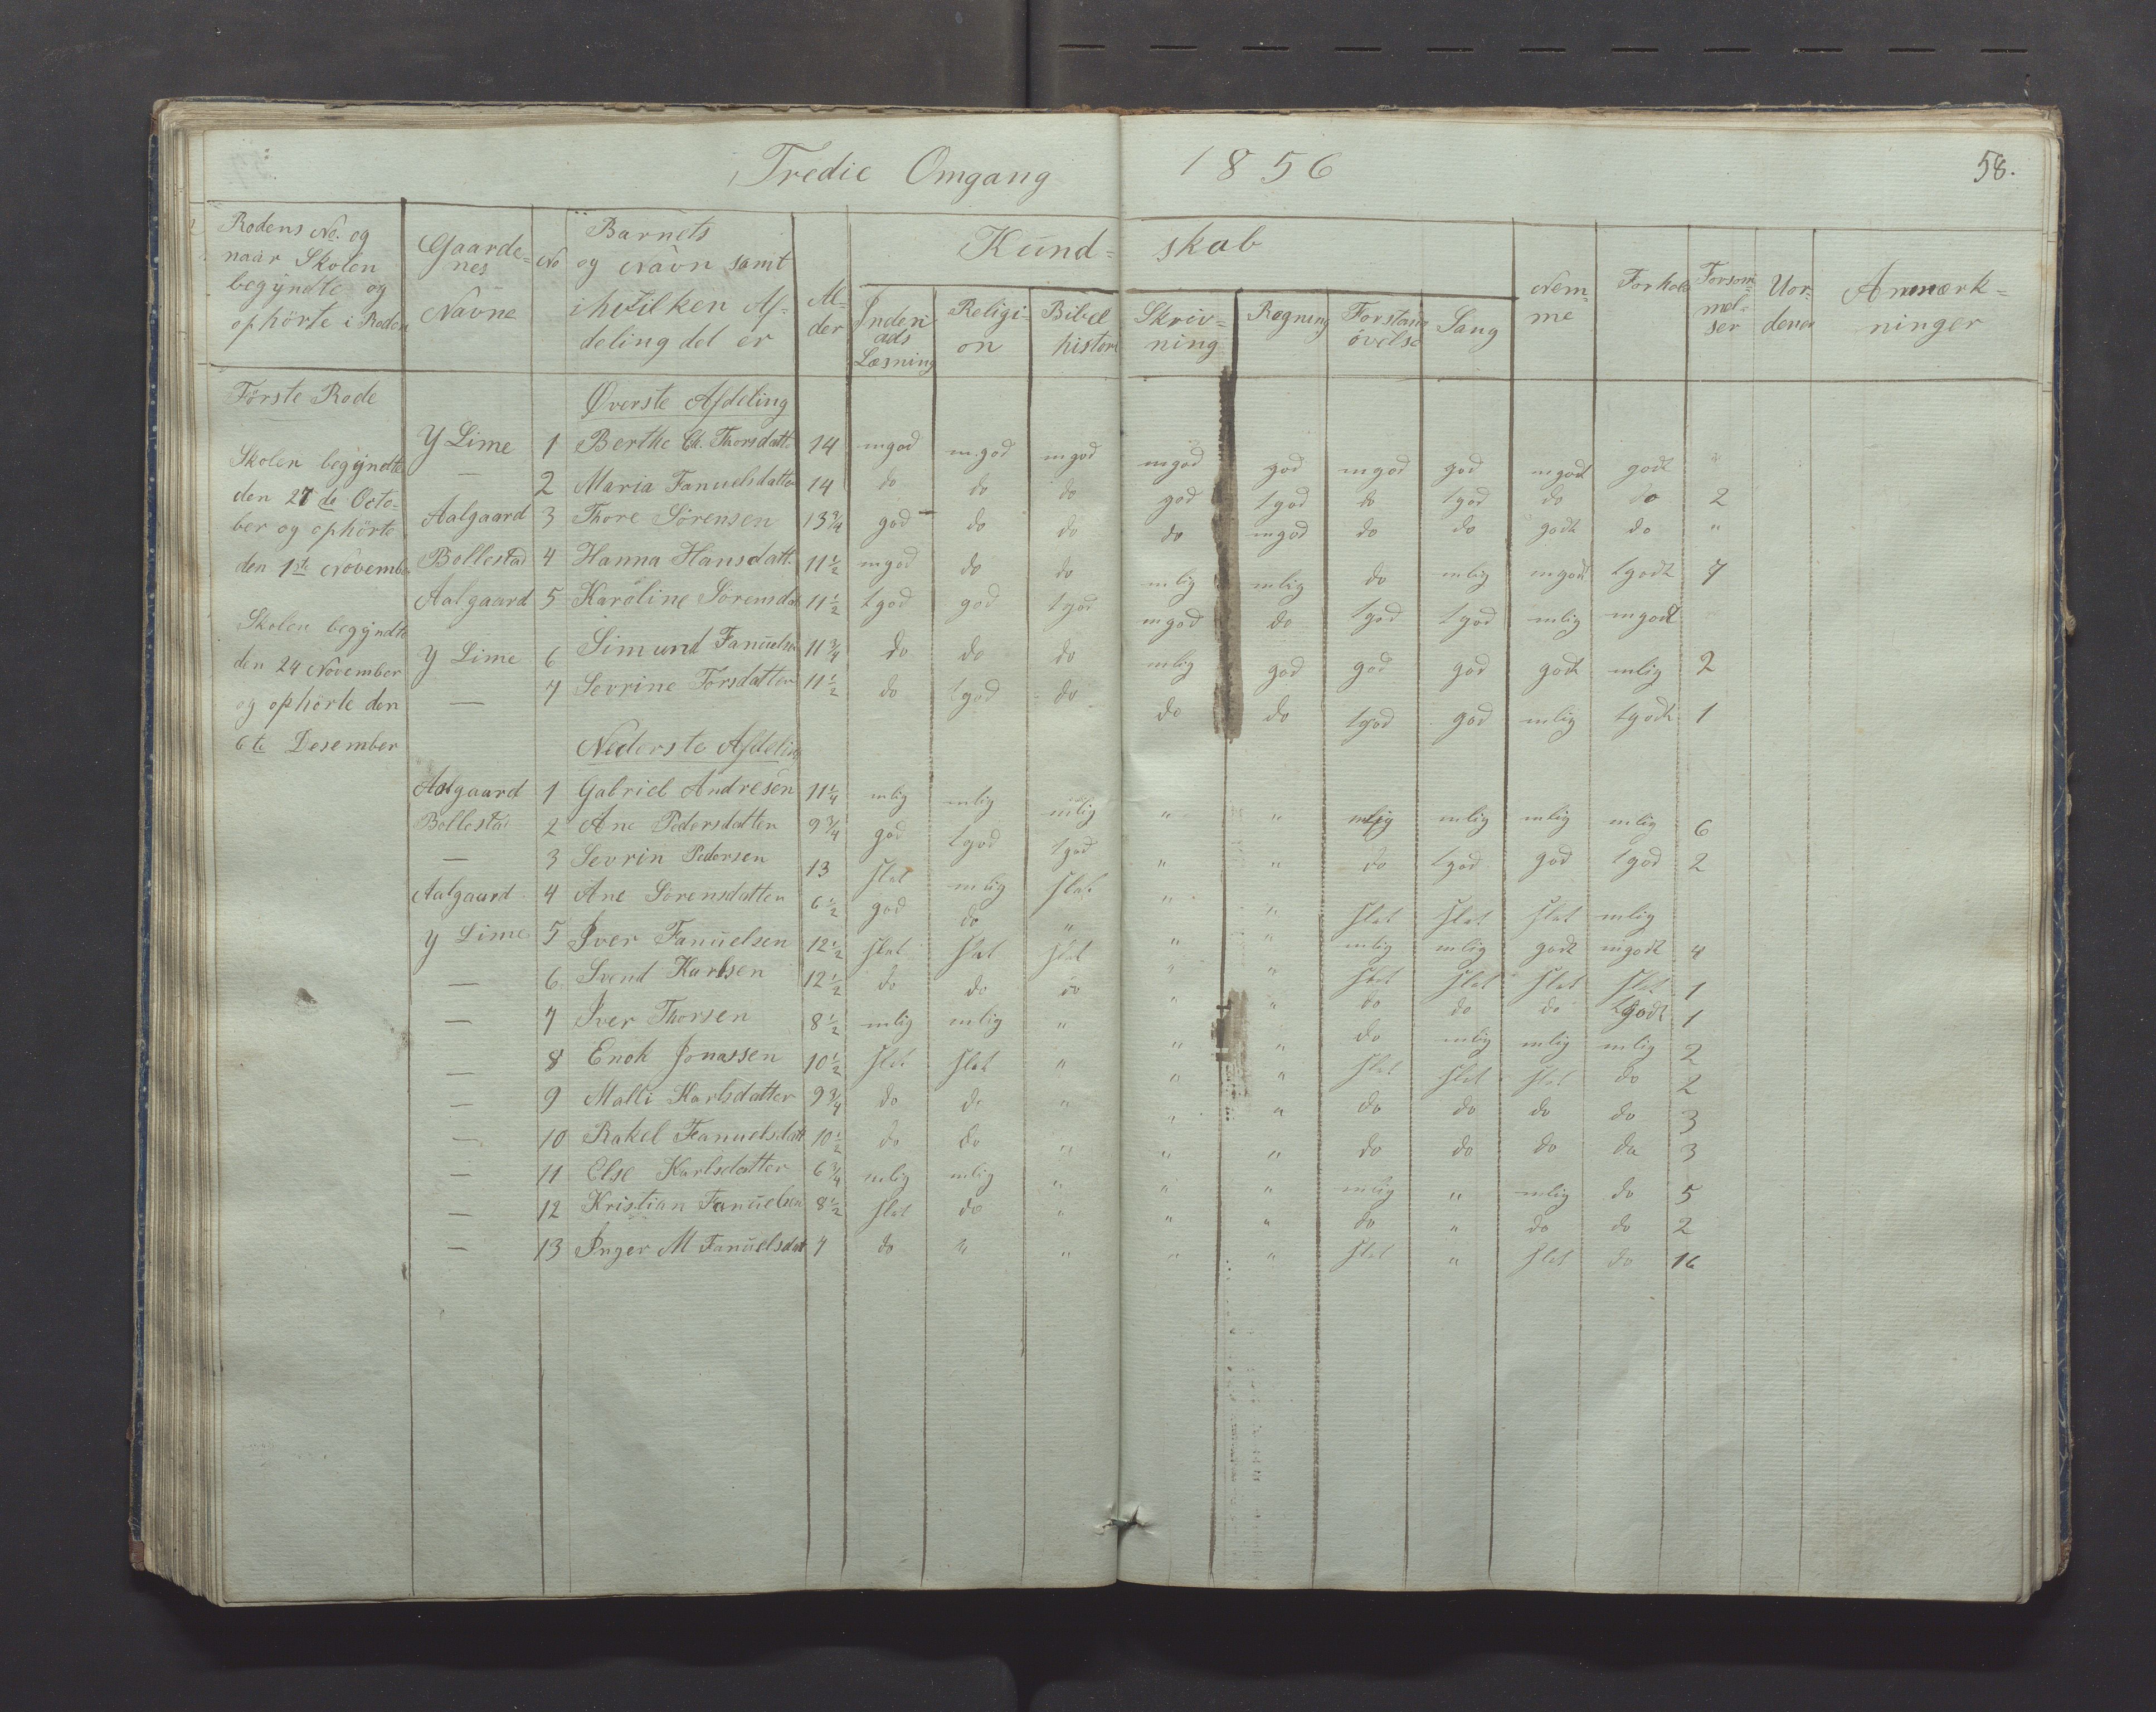 Tredie Omgang 1856 58.
Rodens No. og naar Skolen begyndte og ophörte i Roden | Gaardenes Navne | No | Barnets og Navn samt i hvilken Afdeling det er | Alder | Kund-skab | Nemme | Forhold | Forsommelser | Uordener | Anmærkninger
Indenads Læsning | Religion | Bibel histori | Skrivning | Regning | Forstandsövelse | Sang
Förste Rode
Skolen begyndte
den 27de Octo-
ber og ophörte
den 1ste November
Skolen begyndte
den 24 November
og ophörte den
6te Desember
Øverste Afdeling
Y Lime 1 Berthe Thorsdatt 14 mgod m.god mgod mgod god mgod god mgodt godt "
— 2 Maria Fanuelsdatter 14 do do do god tgod do tgod do do 2
Aalgaard 3 Thore Sörensen 13 3/4 god do do do mgod do do godt do "
Bollestad 4 Hanna Hansdatt. 11 1/2 mgod do do mlig mlig do mlig mgodt tgodt 7
Aalgaard 5 Karoline Sörensdat 11 1/2 tgod god tgod mgod do tgod tgod mlig mgodt
Y Lime 6 Simund Fanuelsen 11 3/4 do do do mlig god god god godt mlig 2
— 7 Sevrine Torsdatter 11 1/2 do tgod do do do tgod god mlig tgodt 1
Nederste Afdeling
Aalgaard 1 Gabriel Andresen 11 1/4 mlig mlig mlig " " mlig mlig mlig mlig 6
Bollestad 2 Ane Pedersdatter 9 3/4 god tgod tgod " " do tgod god tgod 2
— 3 Sevrin Pedersen 13 slet mlig slet " " slet slet slet mlig
Aalgaard 4 Ane Sörensdatter 6 1/2 god do " " " mlig mlig godt mgodt 4
Y Lime 5 Iver Fanuelsen 12 1/2 slet slet slet " " slet slet slet slet 1
— 6 Svend Karlsen 12 1/2 do do do " " do do do tgodt 1
— 7 Iver Thorsen 8 1/2 mlig mlig " " " do mlig mlig mlig 2
— 8 Enok Jonassen 10 1/2 slet slet " " " slet slet slet do 2
— 9 Malli Karlsdatter 9 3/4 do do " " " do do do do 3
— 10 Rakel Fanuelsdatt 10 1/2 do do " " " do do do do 3
— 11 Else Karlsdatter 6 3/4 mlig mlig " " " mlig " mlig do 5
— 12 Kristian Fanuelsen 8 1/2 slet do " " " do " do do 2
— 13 Inger M Fanuelsdat 7 do " " " " slet " slet do 16